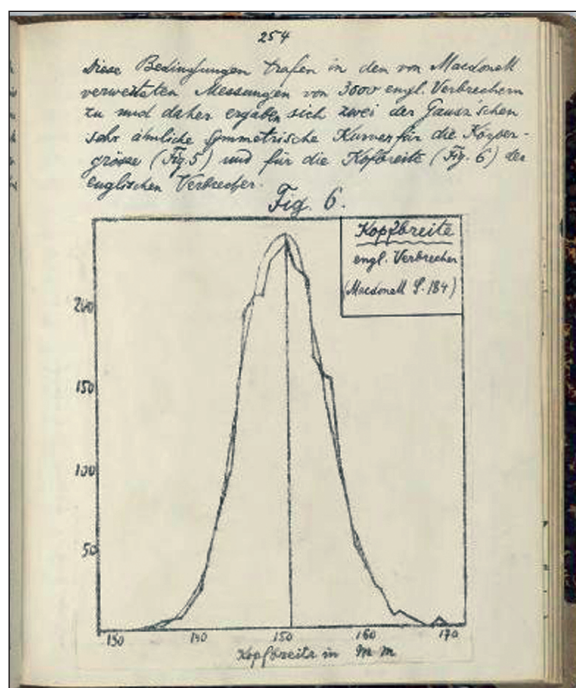 254
Diese Bedingungen trafen in den von Macdonell
verwerteten Messungen von 3000 engl. Verbrechern
zu und daher ergaben sich zwei der Gausz'schen
sehr ähnliche symmetrische Kurven für die Körper-
grösse (Fig. 5) und für die Kopfbreite (Fig. 6) der
englischen Verbrecher.
Fig. 6.
Kopfbreite
engl. Verbrecher
(Macdonell S. 184)
200
150
100
50
130 140 150 160 170
Kopfbreite in M m